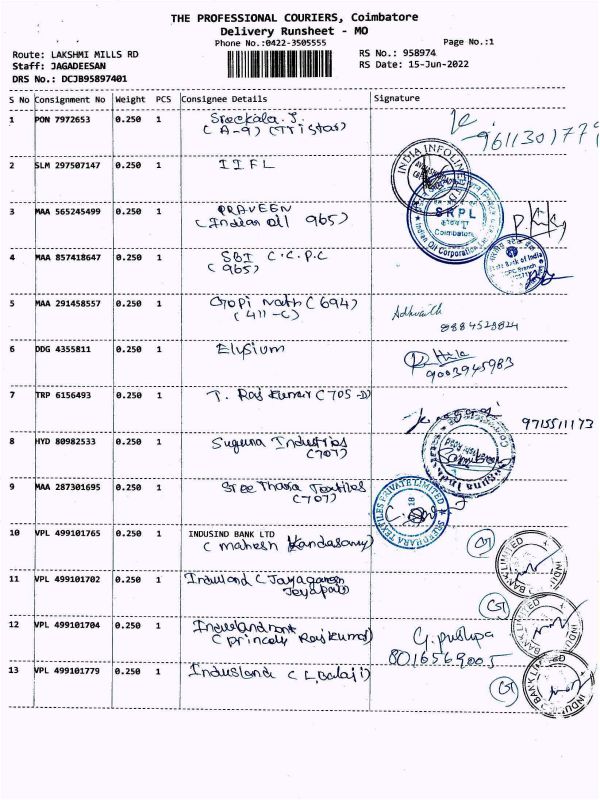 THE PROFESSIONAL COURIERS, Coimbatore
Delivery Runsheet - MO
Phone No.:0422-3505555
Page No.:1
Route: LAKSHMI MILLS RD
RS No.: 958974
Staff: JAGADEESAN
RS Date: 15-Jun-2022
DRS No.: DCJB95897401
S No Consignment No Weight PCS Consignee Details Signature
1 PON 7972653 0.250 1 Sreekala. J.
(A-9) (Tristar)
2 SLM 297507147 0.250 1 IIFL
INDIA INFOLINE
3 MAA 565245499 0.250 1 PRAVEEN
(Indian oil 965)
SRPL
Coimbatore
Indian Oil Corporation
4 MAA 857418647 0.250 1 SBI C.C.P.C
(965)
State Bank of India
5 MAA 291458557 0.250 1 Gopi Nath (694)
(411-C)
Adhvaith
8884528824
6 DDG 4355811 0.250 1 Elysium
9003945983
7 TRP 6156493 0.250 1 T. Raj Kumar (705-D)
9715511173
8 HYD 80982533 0.250 1 Suguna Industries
(707)
9 MAA 287301695 0.250 1 Sree Thara Textiles
(707)
SREEDHARA TEXTILES PRIVATE LIMITED
18
10 VPL 499101765 0.250 1 INDUSIND BANK LTD
(Mahesh Kandasamy)
BANK LIMITED
11 VPL 499101702 0.250 1 Indusland (Jayaganesh
Jeyapal)
BANK LIMITED
12 VPL 499101704 0.250 1
(princely Rajkumar)
G. pushpa
8016569005
13 VPL 499101779 0.250 1 Indusland (L. Balaji)
BANK LIMITED